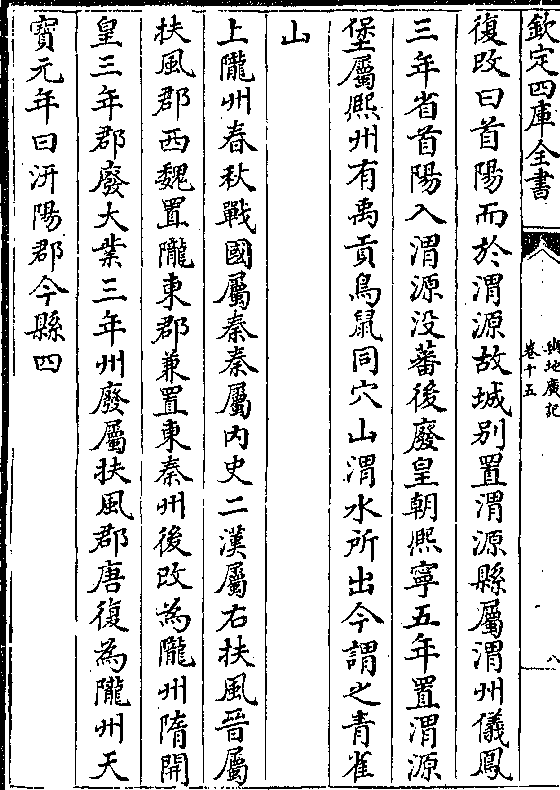 欽定四庫全書
輿地廣記
卷十五
八
復改曰首陽而於渭源故城别置渭源縣屬渭州儀鳳
三年省首陽入渭源没蕃後廢皇朝熙寧五年置渭源
堡屬熙州有禹貢鳥鼠同穴山渭水所出今謂之青雀
山
上隴州春秋戰國屬秦秦屬内史二漢屬右扶風晉屬
扶風郡西魏置隴東郡兼置東秦州後改為隴州隋開
皇三年郡廢大業三年州廢屬扶風郡唐復為隴州天
寳元年曰汧陽郡今縣四